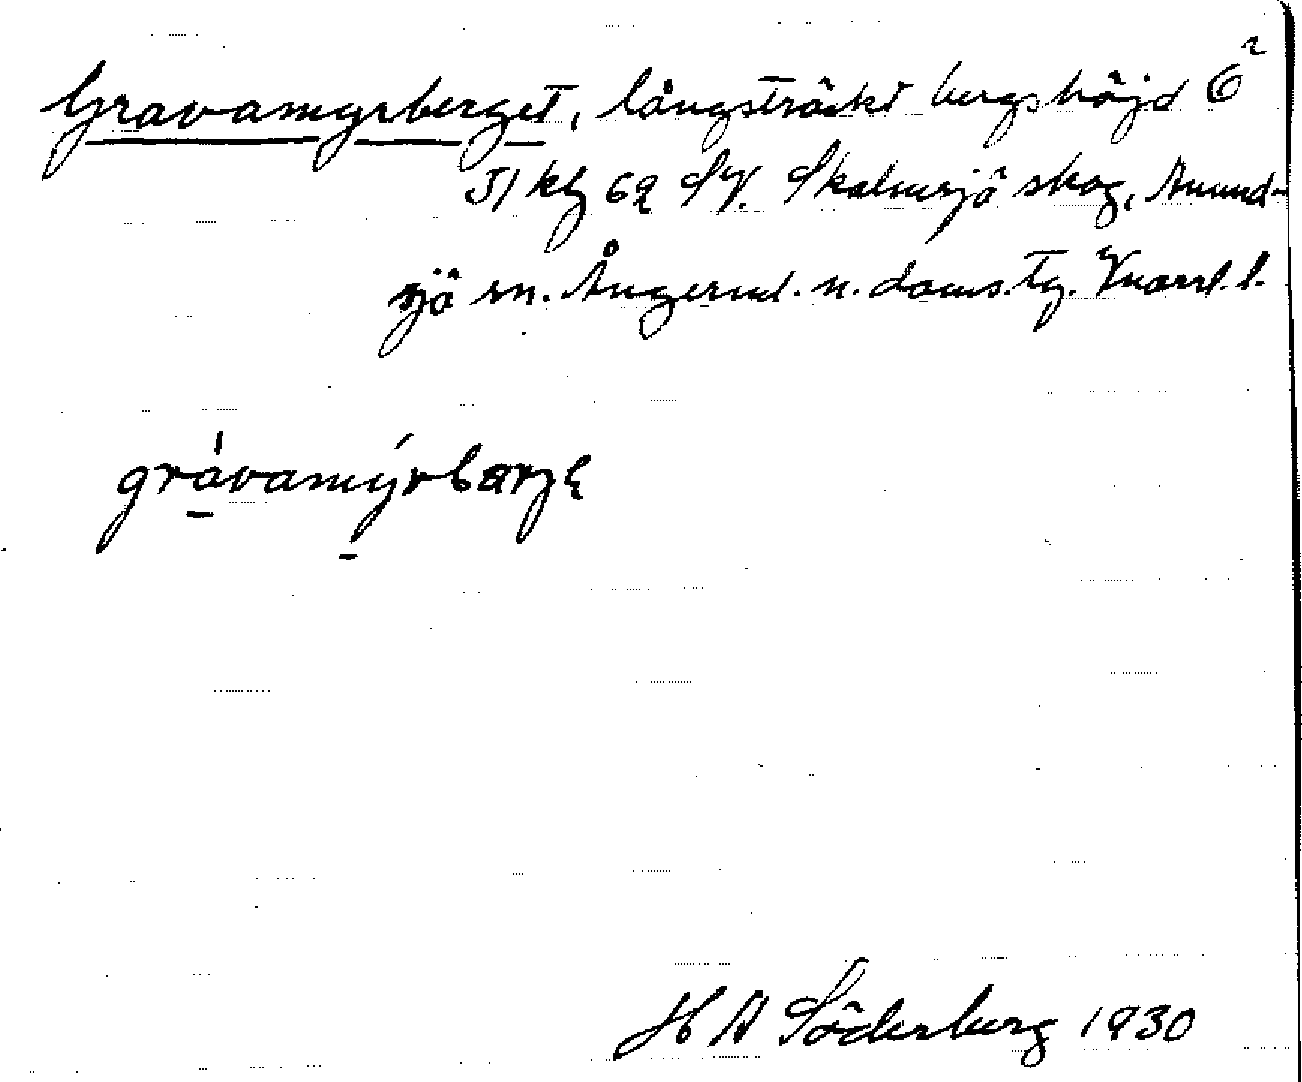 Gravamyrberget, långsträckt bergshöjd Ö²
Jl kbl 62 SV. Skalmsjö skog, Anund-
sjö sn. Ångerml. n. doms. tg. Vnorrl. l.
gràvamýrbærjε
H A Söderberg 1930